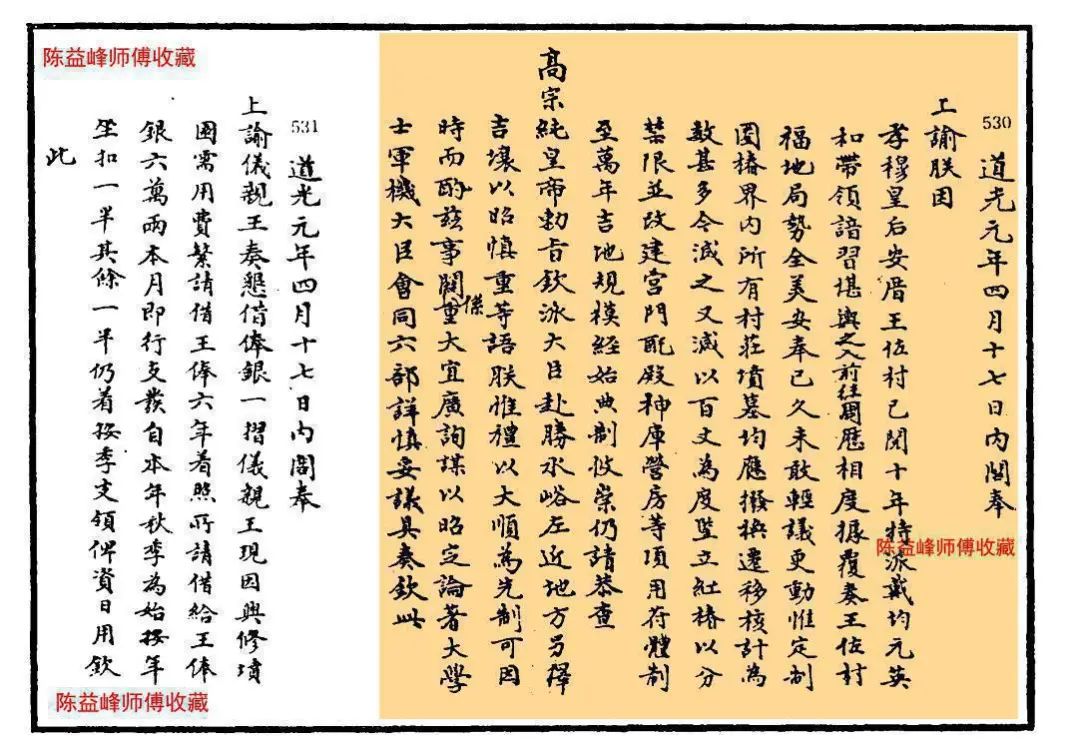 陈益峰师傅收藏
530
道光元年四月十七日內閣奉
上諭朕因
孝穆皇后安厝王佐村已閱十年特派戴均元英
和帶領諳習堪輿之人前往周歷相度據覆奏王佐村
福地局勢全美安奉已久未敢輕議更動惟定制
圈樁界內所有村莊墳墓均應撥換遷移核計為
數甚多令減之又減以百丈為度豎立紅樁以分
禁限並改建宮門配殿神庫營房等項用符體制
至萬年吉地規模經始典制攸崇仍請恭查
高宗純皇帝勅旨欽派大臣赴勝水峪左近地方另擇
吉壤以昭慎重等語朕惟禮以大順為先制可因
時而酌茲事關係重大宜廣詢謀以昭定論著大學
士軍機大臣會同六部詳慎妥議具奏欽此
陈益峰师傅收藏
531
道光元年四月十七日內閣奉
上諭儀親王奏懇借俸銀一摺儀親王現因興修墳
園需用費繁請借王俸六年着照所請借給王俸
銀六萬兩本月即行支發自本年秋季為始按年
坐扣一半其餘一半仍着按季支領俾資日用欽
此
陈益峰师傅收藏